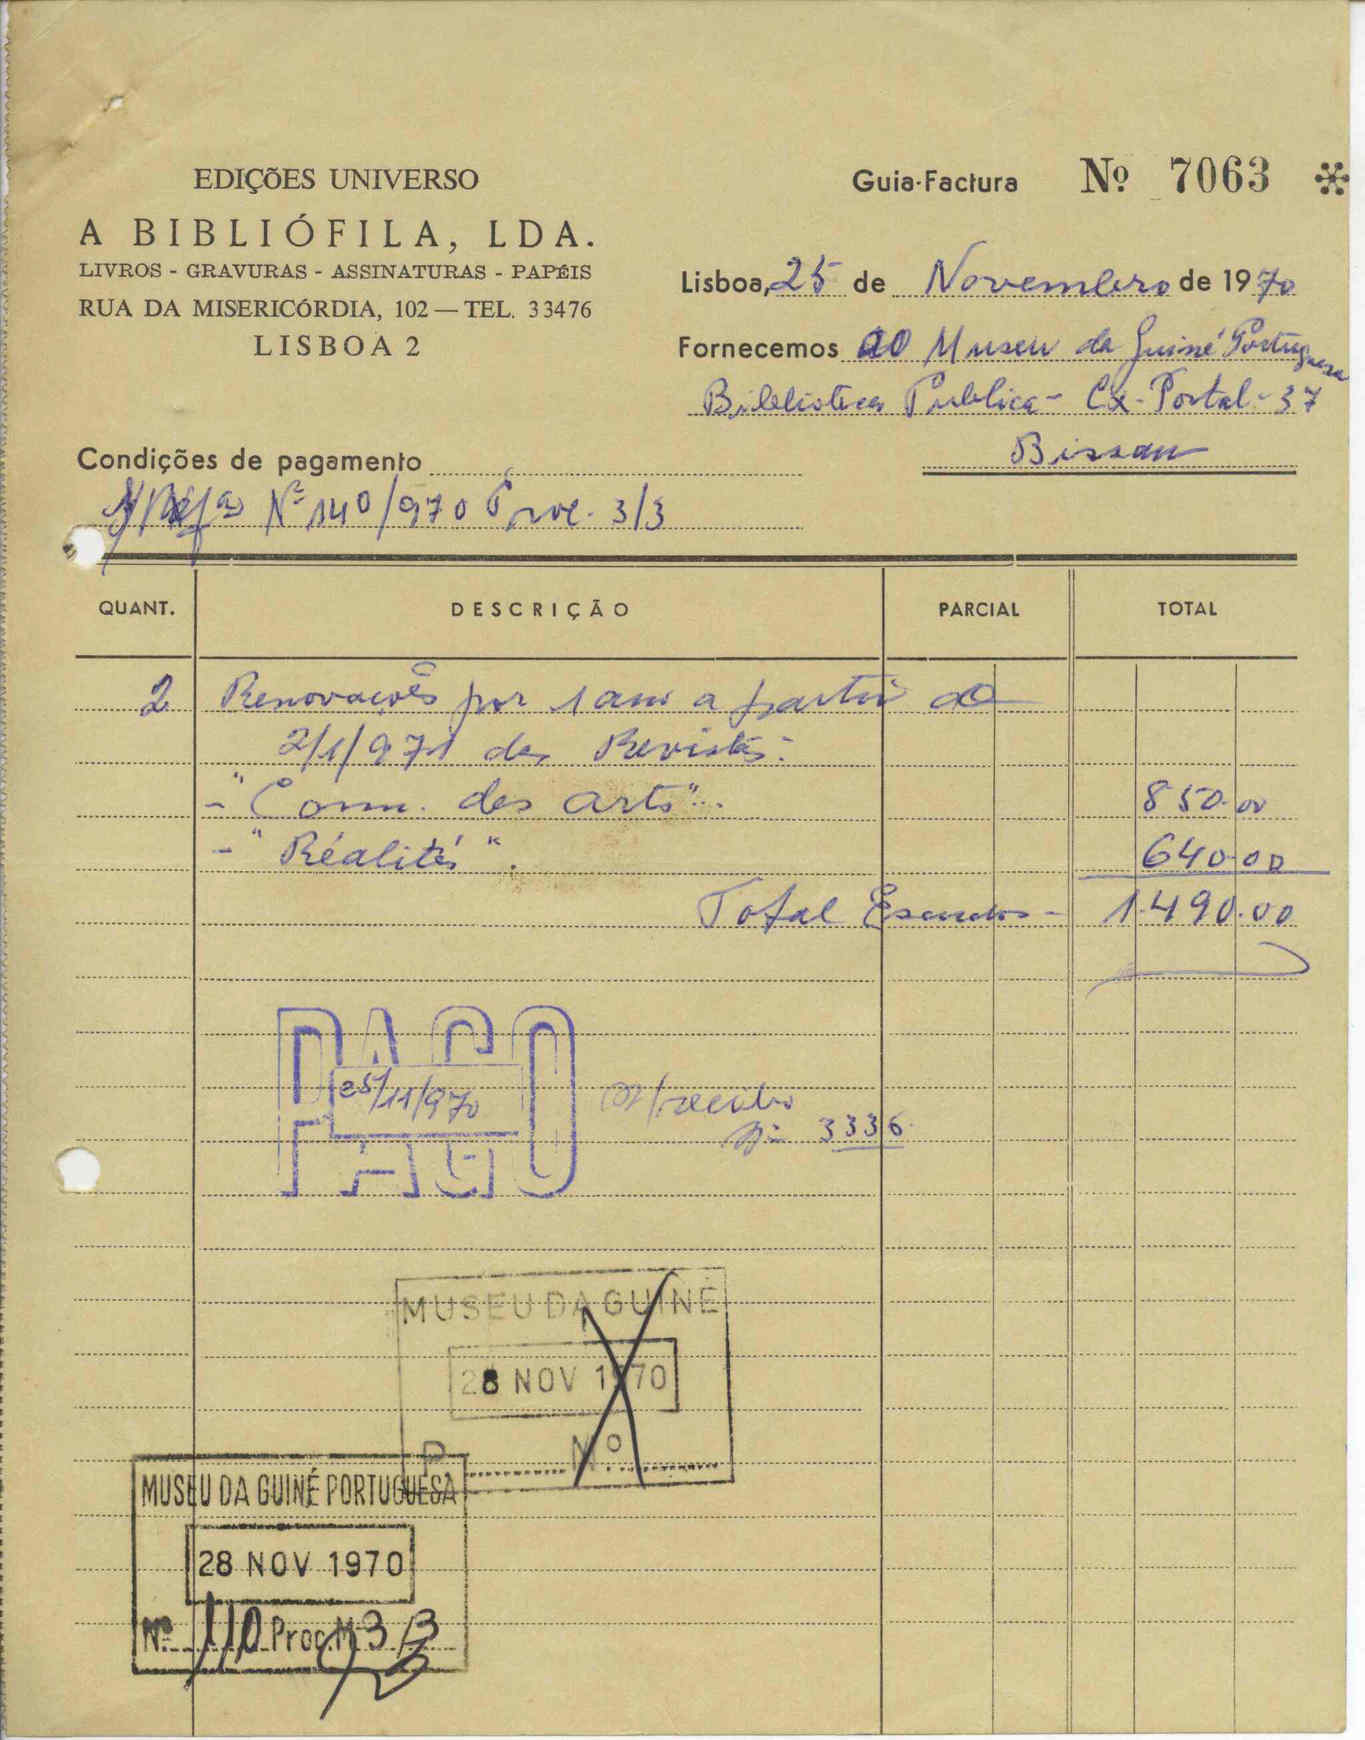 EDIÇÕES UNIVERSO
A BIBLIÓFILA, LDA.
LIVROS - GRAVURAS - ASSINATURAS - PAPÉIS
RUA DA MISERICÓRDIA, 102 — TEL. 33476
LISBOA 2
Guia-Factura Nº 7063
Lisboa, 25 de Novembro de 1970
Fornecemos ao Museu da Guiné Portuguesa
Biblioteca Publica - Cx. Postal - 37
Bissau
Condições de pagamento
Nº 140/970 Proc. 3/3
QUANT. DESCRIÇÃO PARCIAL TOTAL
2 Renovações por 1 ano a partir de
2/1/971 das Revistas:
- "Conn. des arts". 850.00
- "Réalités". 640.00
Total Escudos - 1.490.00
PAGO
25/11/970
recibo
nº 3336
MUSEU DA GUINÉ
28 NOV 1970
P. Nº
MUSEU DA GUINÉ PORTUGUESA
28 NOV 1970
Nº 110 Proc M 3/3